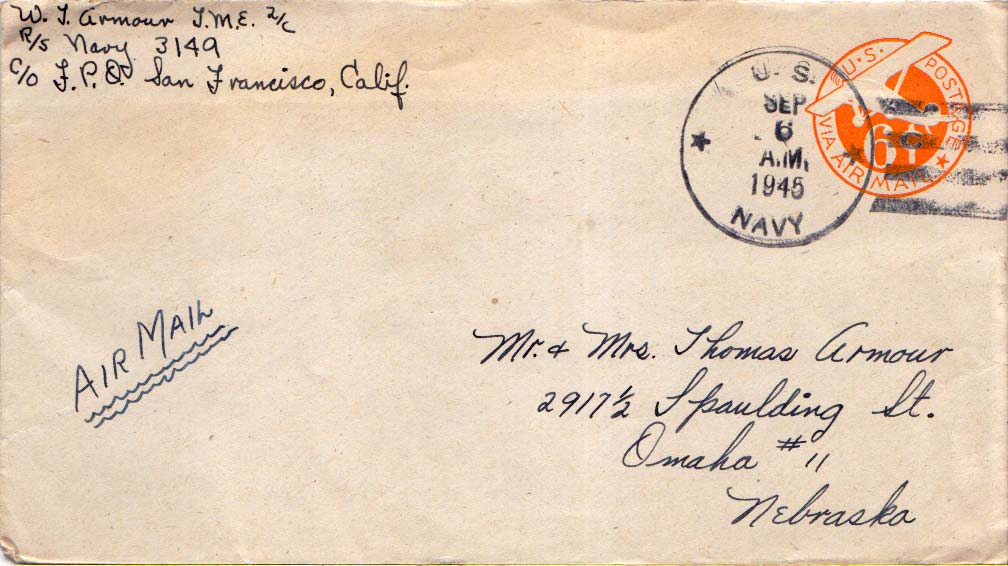 W. T. Armour T.M.E. 2/c
R/S Navy 3149
C/O F.P.O. San Francisco, Calif.
U.S.
SEP
6
A.M.
1945
NAVY
U.S. POSTAGE
6¢
VIA AIR MAIL
AIR MAIL
Mr. & Mrs. Thomas Armour
2917½ Spaulding St.
Omaha #11
Nebraska